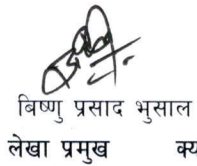 बिष्णु प्रसाद भुसाल
लेखा प्रमुख क्य